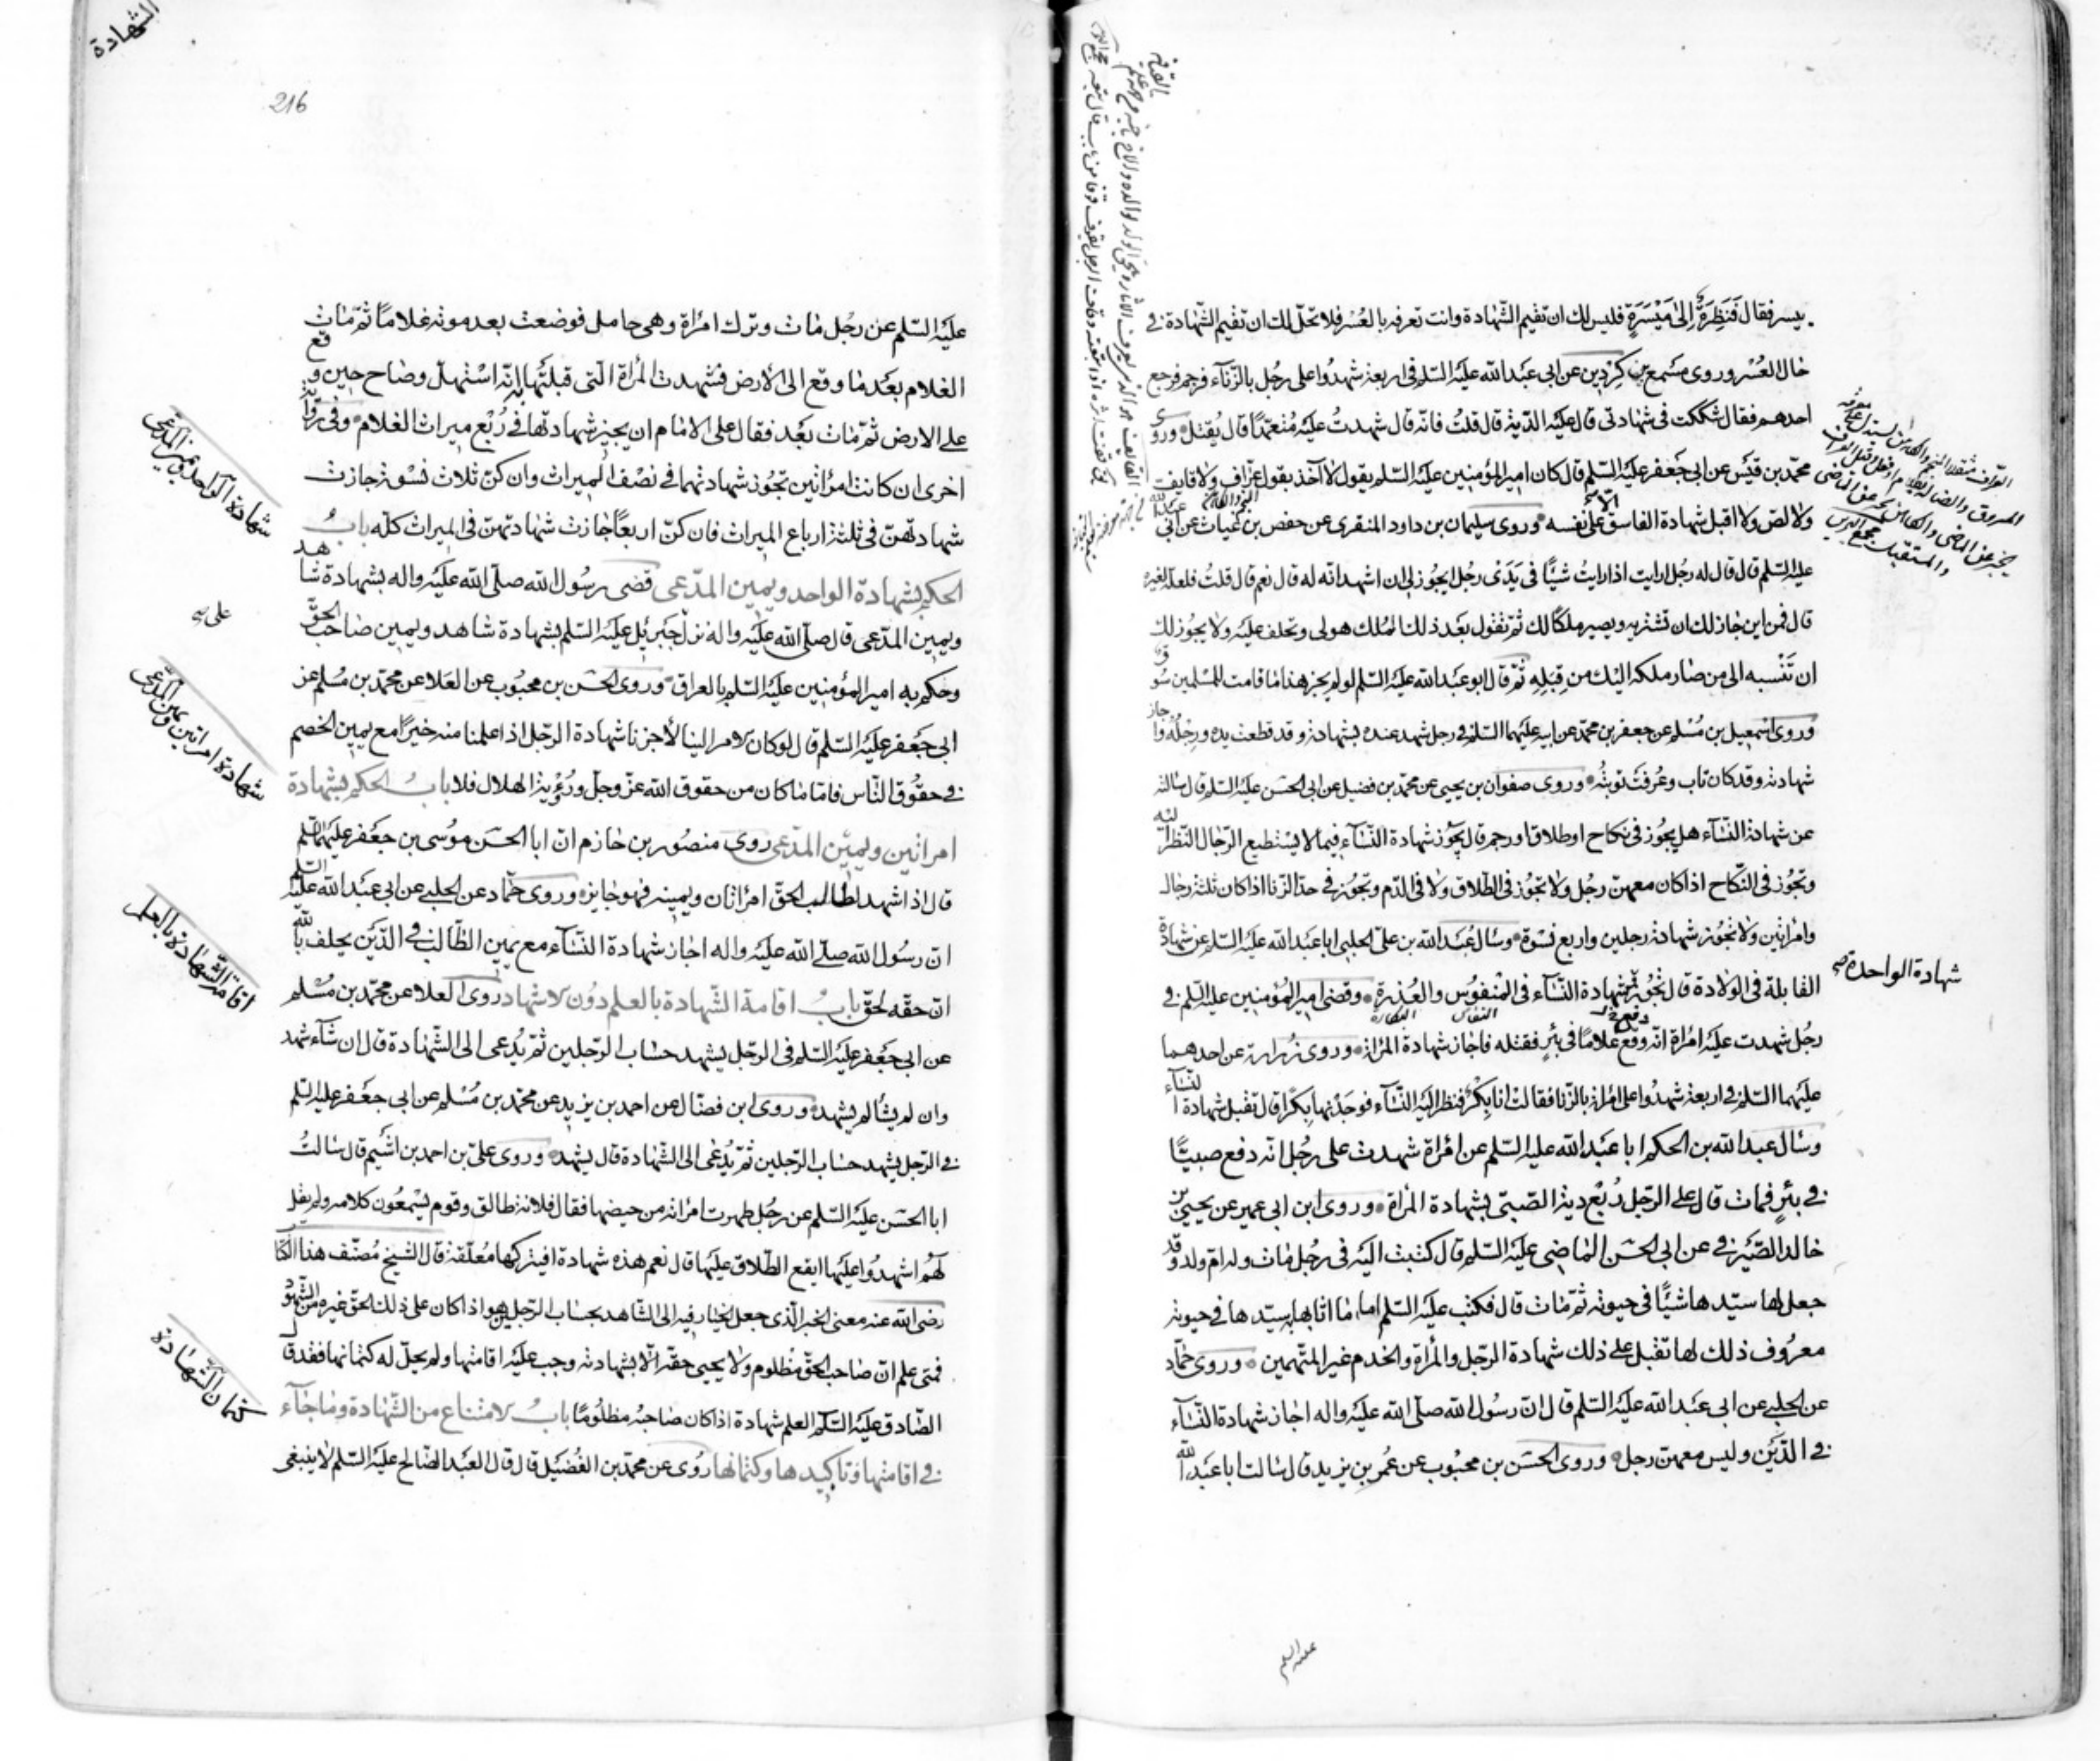 يسر فقال فَنَظِرَةٌ إِلىٰ مَيْسَرَةٍ فليس لك ان تقيم الشهادة وانت تعرفه بالعُسْر فلا تحلّ لك ان تقيم الشهادة في
حال العُسْر وروى مسمع بن كردين عن ابي عبد الله عليه السّلم في اربعة شهدُوا على رجُل بالزّناء فرجم فرجع
احدهم فقال شككت في شهادتى قال عليه الدّية قال قلتُ فانّه قال شهدتُ عليه مُتعمّدًا قال يُقتل وروى
محمّد بن قيس عن ابي جعفر عليه السّلم قال كان امير المؤمنين عليه السّلم يقول لا آخذ بقول عرّاف ولا قايف
ولا لصّ ولا اقبل شهادة الفاسق الّا على نفسه وروى سليمان بن داود المنقرى عن حفص بن غياث عن ابي عبد الله
عليه السّلم قال قال له رجُل ارايت اذا رايتُ شيئًا في يَدَىْ رجُل ايجُوز لى ان اشهد انّه له قال نعم قال قلتُ فلعلّه لغيره
قال فمن اين جاز لك ان تشتريه ويصير ملكًا لك ثمّ تقول بعد ذلك الملك هو لى وتحلف عليه ولا يجُوز لك
ان تَنْسبه الى من صار ملكه اليك من قِبَلِهِ ثمّ قال ابو عبد الله عليه السّلم لو لم يجز هذا ما قامت للمُسْلمين سُوق
وروى اسمعيل بن مُسْلم عن جعفر بن محمّد عن ابيه عليهما السّلم في رجل شهد عنده بشهادة وقد قطعت يده ورِجْلُه فاجاز
شهادته وقد كان تاب وعُرفت توبتُه وروى صفوان بن يحيى عن محمّد بن فضيل عن ابي الحسن عليه السّلم قال سالته
عن شهادة النّساء هل يجُوز في نكاح اوطلاق اورجم قال يجُوز شهادة النّساء فيما لا يسْتطيع الرّجال النّظر اليه
وتجُوز في النّكاح اذا كان معهنّ رجُل ولا تجُوز في الطّلاق ولا في الدّم وتجُوز في حدّ الزّنا اذا كان ثلثة رجال
وامراتين ولا تجُوز شهادة رجلين واربع نسْوة وسال عُبَيد الله بن علىّ الحلبى ابا عبد الله عليه السّلم عن شهادة
القابلة في الولادة قال تجُوز شهادة الواحدة وشهادة النّساء في المنْفُوس والعُذرة وقضى امير المُؤمنين عليه السّلم في
رجُل شهدت عليه امْراة انّه دفع غلامًا في بئرٍ فقتله فاجاز شهادة المرْاة وروى زُرارة عن احدهما
عليهما السّلم في اربعة شهدُوا على امراة بالزّنا فقالت انا بِكْرٌ فنظر اليه النّساء فوجدنها بِكرًا قال تقبل شهادة النّساء
وسال عبد الله بن الحكم ابا عبد الله عليه السّلم عن امْراة شهدت على رجُل انّه دفع صبيًّا
في بئرٍ فمات قال على الرّجل رُبْع دية الصّبىّ بشهادة المرْاة وروى ابن ابي عمير عن يحيى بن
خالد الصّيرفي عن ابي الحسن الماضى عليه السّلم قال كتبت اليه في رجُل مات وله امّ ولد وقد
جعل لها سيّدها شيئًا في حيوته ثمّ مات قال فكتب عليه السّلم لها ما اثابها به سيّدها في حيوته
معرُوف ذلك لها تقبل على ذلك شهادة الرّجل والمرْاة والخدم غير المتّهمين وروى حمّاد
عن الحلبى عن ابي عبد الله عليه السّلم قال انّ رسُول الله صلّى الله عليه واله اجاز شهادة النّساء
في الدّيَن وليس معهنّ رجل وروى الحسن بن محبُوب عن عُمر بن يزيد قال سالت ابا عبد الله
شهادة الواحدة
عليه السلم
الشهادة
216
عليه السّلم عن رجُل مات وترك امراة وهى حامل فوضعت بعد موته غلامًا ثمّ مات
الغلام بعد ما وقع الى الارض فشهدت المرْاة الّتى قبلتْها انّه اسْتهلّ وصاح حين وقع
على الارض ثمّ مات بعد فقال على الامام ان يجيز شهادتها في رُبْع ميراث الغلام وفى رواية
اخرى ان كانت امراتين تجُوز شهادتهما في نصْف الميراث وان كنّ ثلاث نسْوة جازت
شهادتهنّ في ثلثة ارباع الميراث فان كنّ اربعًا جازت شهادتهنّ في الميراث كلّه بابُ
الحكم بشهادة الواحد ويمين المدّعى قضى رسُول الله صلّى الله عليه واله بشهادة شاهد
ويمين المدّعى قال صلّى الله عليه واله نزل جبرئيل عليه السّلم بشهادة شاهد ويمين صاحب الحقّ
وحكم به امير المؤمنين عليه السّلم بالعراق وروى الحسن بن محبُوب عن العلا عن محمّد بن مُسْلم عن
ابي جعفر عليه السّلم قال لو كان الامر الينا لأجزنا شهادة الرّجل اذا علمنا منه خيرًا مع يمين الخصم
في حقُوق النّاس فامّا ما كان من حقوق الله عزّ وجلّ ورُؤية الهلال فلا بابُ الحكم بشهادة
امراتين ويمين المدّعى روى منصُور بن حازم انّ ابا الحسن مُوسى بن جعفر عليهما السّلم
قال اذا شهد لطالب الحقّ امراتان ويمينه فهو جايز وروى حمّاد عن الحلبى عن ابي عبد الله عليه السّلم
انّ رسُول الله صلّى الله عليه واله اجاز شهادة النّساء مع يمين الطّالب في الدّيَن يحلف بالله
انّ حقّه لحقّ بابُ اقامة الشّهادة بالعلم دُون الاشهاد روى العلا عن محمّد بن مُسْلم
عن ابي جعفر عليه السّلم في الرّجل يشهد حساب الرّجلين ثمّ يُدعى الى الشّهادة قال ان شاء شهد
وان لم يشالم يشهد وروى ابن فضّال عن احمد بن يزيد عن محمّد بن مُسْلم عن ابي جعفر عليه السّلم
في الرّجل يشهد حساب الرّجلين ثمّ يُدْعى الى الشّهادة قال يشهد وروى علىّ بن احمد بن اشيم قال سالتُ
ابا الحسن عليه السّلم عن رجُل طهرت امراته من حيضها فقال فلانة طالق وقوم يسْمعُون كلامه ولم يقل
لهُم اشهدُوا عليها ايقع الطّلاق عليها قال نعم هذه شهادة افيتركها مُعلّقة قال الشيخ مُصنّف هذا الكتاب
رضى الله عنه معنى الخبر الّذى جعل الخيار فيه الى الشّاهد بحساب الرّجلين هو اذا كان على ذلك الحقّ غيره من الشّهُود
فمتى علم انّ صاحب الحقّ مظلوم ولا يحيى حقّه الّا بشهادته وجب عليه اقامتها ولم يحلّ له كتمانها فقد قال
الصّادق عليه السّلم العلم شهادة اذا كان صاحبُه مظلُومًا بابُ الامتناع من الشّهادة وما جاء
في اقامتها وتاكيدها وكتمانها رُوى عن محمّد بن الفُضَيل قال قال العبد الصّالح عليه السّلم لا ينبغى
شهادة الواحد ويمين المدّعى
شهادة امراتين ويمين المدّعى
اقامة الشّهادة بالعلم
كتمان الشّهادة